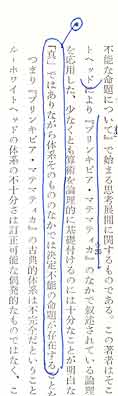 不能な命題について」で始まる思考展開に関するものである。この著者はそこ
トヘッドにより『プリンキピア・マテマティカ』のなかで叙述されている論理
を応用した、少なくとも算術を論理的に基礎付けるのには十分なことが明白な
「真」ではありながら体系そのもののなかでは決定不能の命題が存在することを
つまり『プリンキピア・マテマティカ』の古典的体系は不完全だということ
ル＝ホワイトヘッドの体系の不十分さは訂正可能な偶発的なものではなく、こ